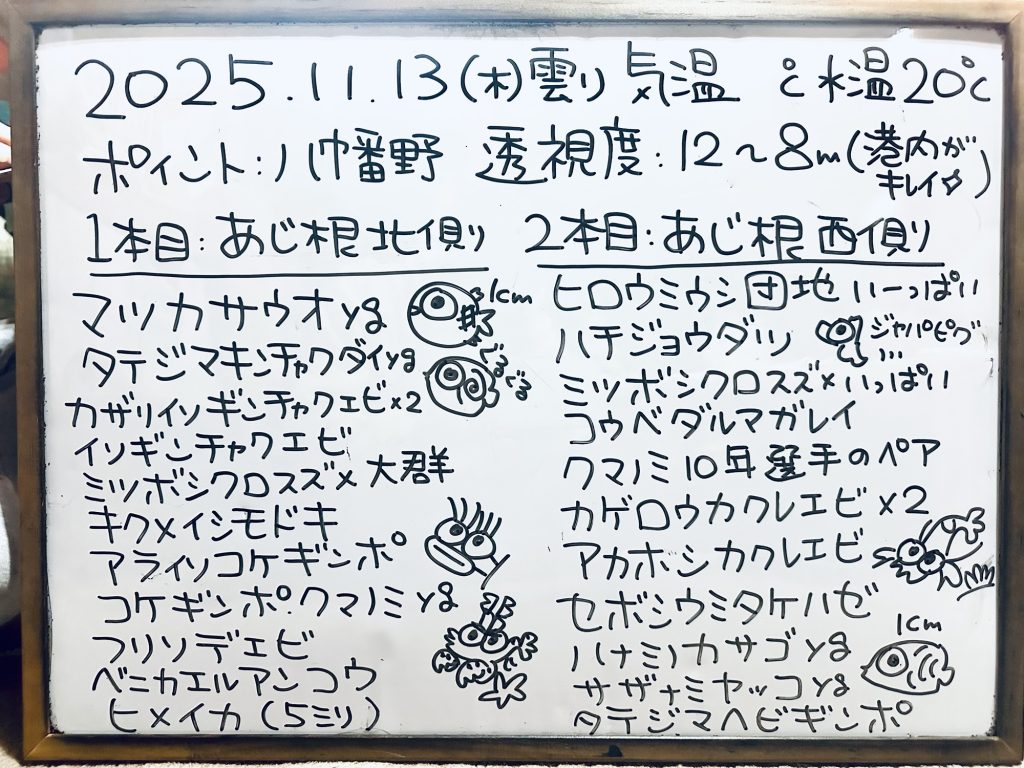 2025.11.13(木)雲り 気温 ℃ 水温20℃
ポイント:八幡野 透視度:12～8m(港内がキレイ☆)
1本目:あじ根北側り
マツカサウオyg 1cm
タテジマキンチャクダイyg ぐるぐる
カザリイソギンチャクエビ×2
イソギンチャクエビ
ミツボシクロスズメ大群
キクメイシモドキ
アライソコケギンポ
コケギンポ.クマノミyg
フリソデエビ
ベニカエルアンコウ
ヒメイカ(5ミリ)
2本目:あじ根西側り
ヒロウミウシ団地いーっぱい
ハチジョウダツ ジャパピグ...
ミツボシクロスズメいっぱい
コウベダルマガレイ
クマノミ10年選手のペア
カゲロウカクレエビ×2
アカホシカクレエビ
セボシウミタケハゼ
ハナミノカサゴyg 1cm
サザナミヤッコyg
タテジマヘビギンポ